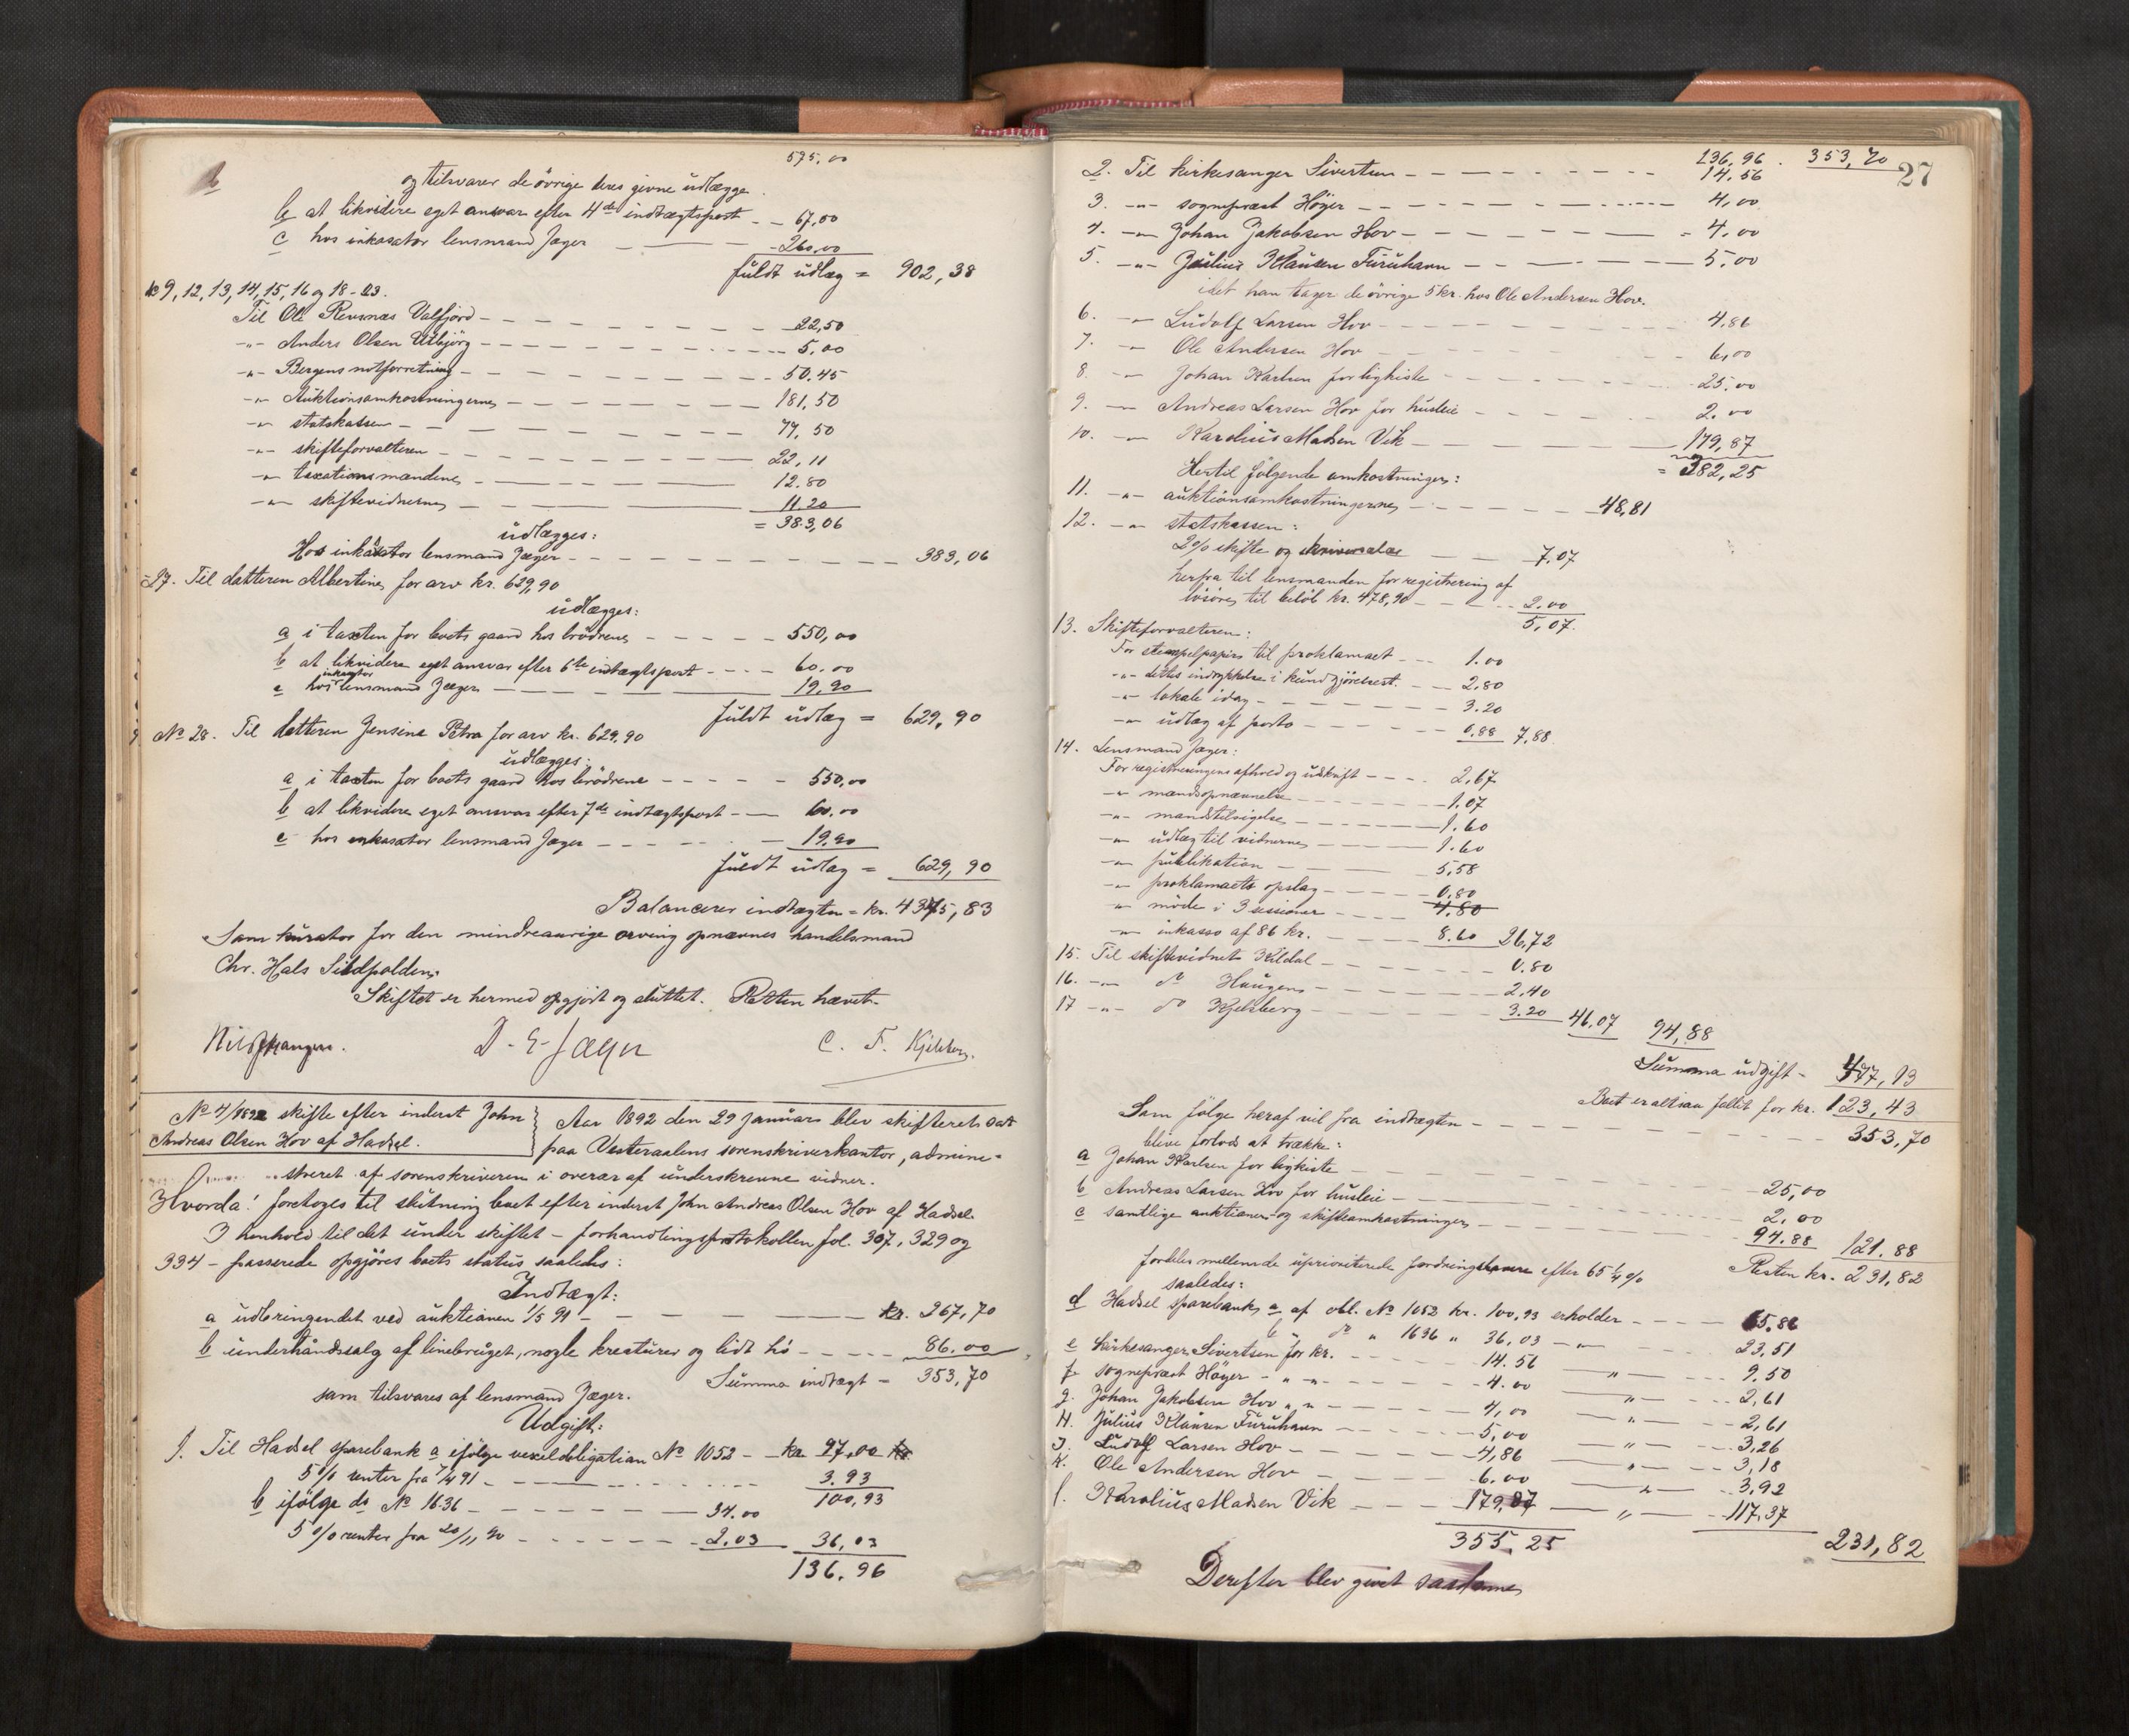 575,00
og tilsvarer de övrige deres givne udlægge.
b at likvidere eget ansvar efter 4de indtægtspost - - 67,00
c hos inkasator lensmand Jæger - 260,00
fuldt udlæg = 902,38
9, 12, 13, 14, 15, 16 og 18-23.
Til Ole Revsnæs Valfjord - - - 22,50
-"- Anders Olsen Utbjörg - - - 5,00
-"- Bergens notforretning - - - 50.45
-"- Auktionsomkostningerne - - - 181,50
-"- statskassen - - - 77,50
-"- skifteforvalteren - - - 22,11
-"- taxationsmændene - - - 12.80
-"- skiftevidnerne - - - 11.20
= 383,06
udlægges:
Hos inkasator lensmand Jæger - - - 383,06
27. Til datteren Albertine for arv kr. 629,90
udlægges:
a i taxten for boets gaard hos brödrene - - - 550,00
b at likvidere eget ansvar efter 6te indtægtspost - - - 60.00
inkasator
c hos lensmand Jæger - 19,90
fuldt udlæg = 629,90
No 28. Til datteren Jensine Petra for arv kr. 629,90
udlægges:
a i taxten for boets gaard hos brödrene - - - 550,00
b at likvidere eget ansvar efter 7de indtægtspost - - 60,00
c hos inkasator lensmand Jæger - - - 19,90
fuldt udlæg = 629,90
Balancerer indtægten = kr. 4375,83
Som kurator for den mindreaarige arving opnævnes handelsmand
Chr. Hals Sildpolden.
Skiftet er hermed opgjort og sluttet. Retten hævet.
D. E. Jæger C. F. Kjelsberg.
No 4/1892 skifte efter inderst John
Andreas Olsen Hov af Hadsel.
Aar 1892 den 29 januar blev skifteret sat
paa Vesteraalens sorenskriverkontor, admini-
streret af sorenskriveren i overvær af underskrevne vidner.
Hvorda! foretoges til slutning boet efter inderst John Andreas Olsen Hov af Hadsel.
I henhold til det under skiftet - forhandlingsprotokollen fol. 307, 329 og
334 - passerede opgjöres boets status saaledes:
Indtægt:
a udbringendet ved auktionen 1/5 91 - - - kr. 267,70
b underhåndssalg af linebruget, nogle kreaturer og lidt hö - - - 86.00
Summa indtægt = 353,70
som tilsvares af lensmand Jæger.
Udgift:
1. Til Hadsel sparebank a ifölge vexelobligation No 1052 - kr. 97,00
5 % renter fra 7/4 91 - - - 3.93
100,93
b ifölge do No 1636 - - - 34.00
5 % renter fra 20/11 90 - - - 2.03 36,03
136.96
27
136,96. 353,70
2. Til kirkesanger Sivertsen - - - 14.56
3. -"- sogneprest Höyer - - - 4,00
4. -"- Johan Jakobsen Hov - - - 4.00
5. -"- Julius Klausen Furuhavn - - - 5.00
idet han tager de övrige 5 kr. hos Ole Andersen Hov.
6. -"- Ludolf Larsen Hov - - - 4.86
7. -"- Ole Andersen Hov - - - 6,00
8. -"- Johan Karlsen for ligkiste - - - 25.00
9. -"- Andreas Larsen Hov for husleie - - - 2.00
10. -"- Karolius Madsen Vik - - - 179,87
= 382,25
Hertil fölgende omkostninger:
11. -"- auktionsomkostningerne - - - 48,81
12. -"- statskassen:
2% skifte og - - 7.07
herfra til lensmanden for registrering af
lösöre, til belöb kr. 478,90 - - - 2.00
5,07.
13. Skifteforvalteren:
For stempelpapir til proklamaet - - - 1.00
-"- dettes indrykkelse i kundgjörelsest. - - 2,80
-"- lokale idag - - - 3.20
-"- udlæg af porto - - - 0,88 7,88
14. Lensmand Jæger:
For registreringens afhold og udskrift - - - 2,67
-"- mandsopnævnelse - - - 1,07
-"- mandstilsigelse - - - 1.60
-"- udlæg til vidnerne - - - 1.60
-"- publikation - - - 5,58
-"- proklamaets opslag - - - 0,80
-"- möde i 3 sessioner - - - 4.80
-"- inkasso af 86 kr. - - - 8.60 26,72
15. Til skiftevidnet Kildal - - - 0.80
16. -"- do Haugen - - - 2.40
17 -"- do Kjelsberg - - - 3.20 46,07 94,88
Summa udgift - 477,13
Boet er altsaa fallit for kr. 123,43
Som fölge heraf vil fra indtægten - - - 353,70
blive forlods at trække:
a Johan Karlsen for ligkiste - - - 25,00
b Andreas Larsen Hov for husleie - - - 2,00
c samtlige auktions- og skifteomkostninger - - - 94.88 121.88
Resten kr. 231,82
fordeles mellem de uprioriterede fordringshavere efter 65 1/4 %
saaledes:
d Hadsel sparebank, a af obl. No 1052 kr. 100,93 erholder - - - 65.86
b do " 1636 " 36,03 - " - 23,51
e kirkesanger Sivertsen for kr. - - - 14.56 - " - 9.50
f sogneprest Höyer - " - " - - - 4.00 - " - 2,61
g. Johan Jakobsen Hov " " - - - 4,00 - " - 2,61
H. Julius Klausen Furuhavn - - - 5,00 - " - 3,26
J. Ludolf Larsen Hov - - - 4,86 - " - 3,18
K. Ole Andersen Hov - - - 6.00 - " - 3,92
l. Karolius Madsen Vik - - - 179,87 - " - 117,37
355.25 231,82
Derefter blev givet saadanne